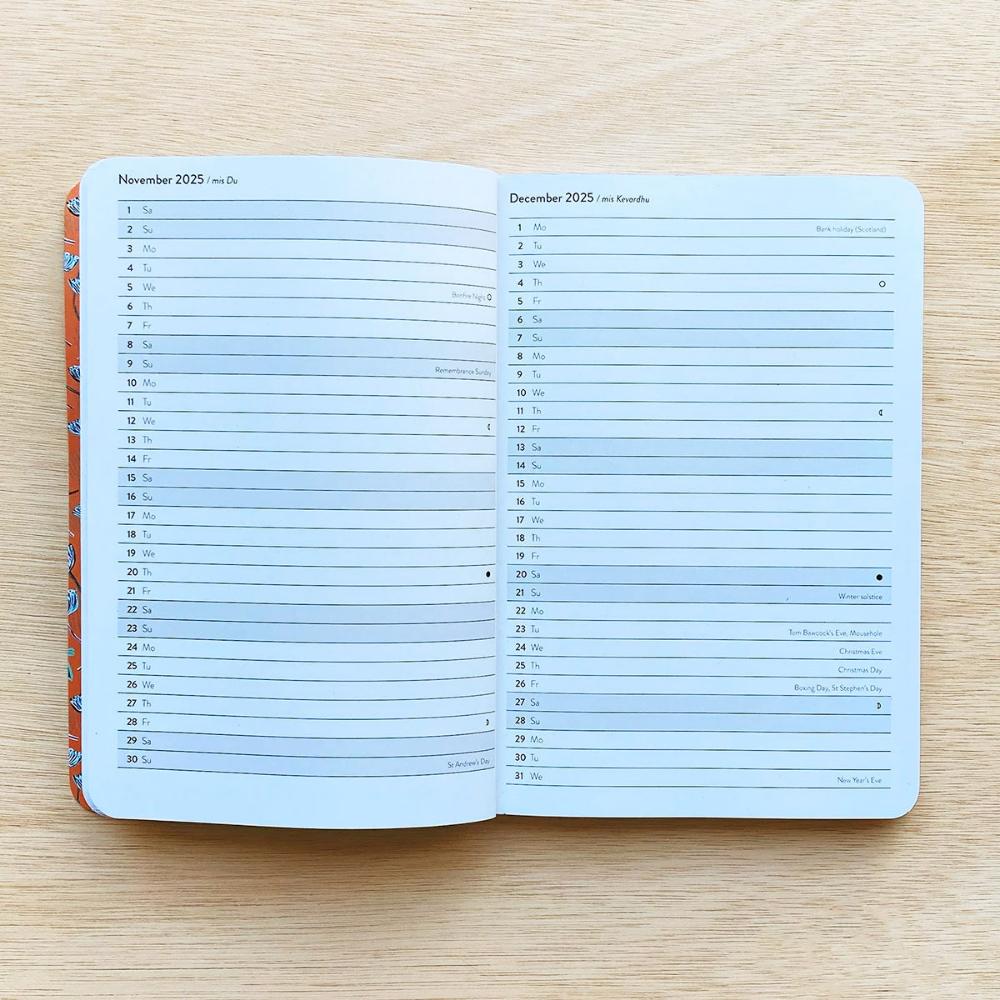 November 2025 / mis Du
1 Sa
2 Su
3 Mo
4 Tu
5 We Bonfire Night
6 Th
7 Fr
8 Sa
9 Su Remembrance Sunday
10 Mo
11 Tu
12 We
13 Th
14 Fr
15 Sa
16 Su
17 Mo
18 Tu
19 We
20 Th
21 Fr
22 Sa
23 Su
24 Mo
25 Tu
26 We
27 Th
28 Fr
29 Sa
30 Su St Andrew's Day
December 2025 / mis Kevardhu
1 Mo Bank holiday (Scotland)
2 Tu
3 We
4 Th
5 Fr
6 Sa
7 Su
8 Mo
9 Tu
10 We
11 Th
12 Fr
13 Sa
14 Su
15 Mo
16 Tu
17 We
18 Th
19 Fr
20 Sa
21 Su Winter solstice
22 Mo
23 Tu Tom Bawcock's Eve, Mousehole
24 We Christmas Eve
25 Th Christmas Day
26 Fr Boxing Day, St Stephen's Day
27 Sa
28 Su
29 Mo
30 Tu
31 We New Year's Eve